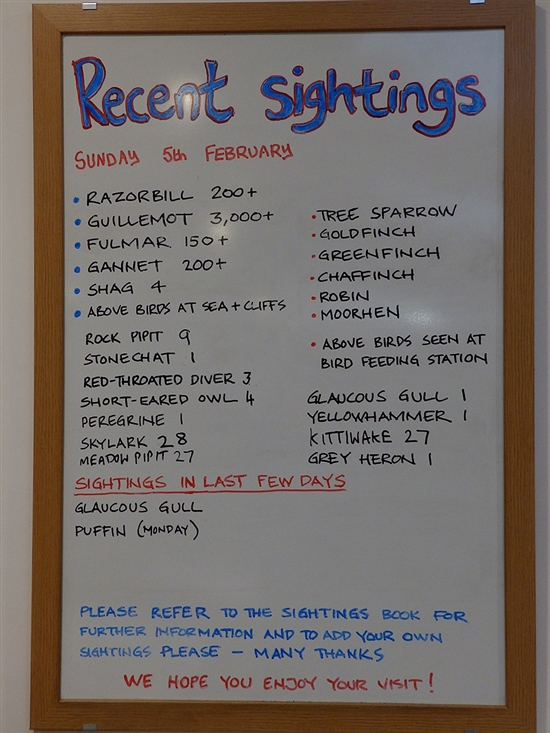 Recent Sightings
SUNDAY 5th FEBRUARY
• RAZORBILL 200+
• GUILLEMOT 3,000+
• FULMAR 150+
• GANNET 200+
• SHAG 4
• ABOVE BIRDS AT SEA + CLIFFS
ROCK PIPIT 9
STONECHAT 1
RED-THROATED DIVER 3
SHORT-EARED OWL 4
PEREGRINE 1
SKYLARK 28
MEADOW PIPIT 27
• TREE SPARROW
• GOLDFINCH
• GREENFINCH
• CHAFFINCH
• ROBIN
• MOORHEN
• ABOVE BIRDS SEEN AT
BIRD FEEDING STATION
GLAUCOUS GULL 1
YELLOWHAMMER 1
KITTIWAKE 27
GREY HERON 1
SIGHTINGS IN LAST FEW DAYS
GLAUCOUS GULL
PUFFIN (MONDAY)
PLEASE REFER TO THE SIGHTINGS BOOK FOR
FURTHER INFORMATION AND TO ADD YOUR OWN
SIGHTINGS PLEASE – MANY THANKS
WE HOPE YOU ENJOY YOUR VISIT!